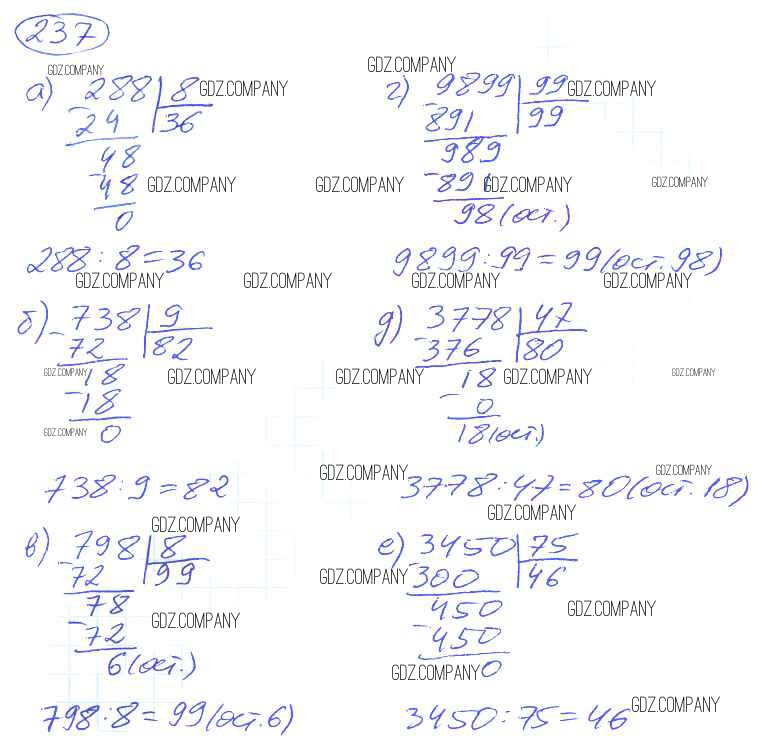 237
GDZ.COMPANY
GDZ.COMPANY
а) 288 | 8 GDZ.COMPANY
- 24 | 36
48
- 48 GDZ.COMPANY
0
288 : 8 = 36
GDZ.COMPANY GDZ.COMPANY
г) 9899 | 99 GDZ.COMPANY
- 891 | 99
989
GDZ.COMPANY - 891 GDZ.COMPANY GDZ.COMPANY
98 (ост.)
9899 : 99 = 99 (ост. 98)
GDZ.COMPANY GDZ.COMPANY
б) 738 | 9
- 72 | 82
GDZ.COMPANY 18 GDZ.COMPANY
- 18
GDZ.COMPANY 0
738 : 9 = 82
д) 3778 | 47
- 376 | 80
GDZ.COMPANY 18 GDZ.COMPANY GDZ.COMPANY
- 0
18 (ост.)
GDZ.COMPANY GDZ.COMPANY
3778 : 47 = 80 (ост. 18)
GDZ.COMPANY GDZ.COMPANY
в) 798 | 8
- 72 | 99
78
- 72 GDZ.COMPANY
6 (ост.)
798 : 8 = 99 (ост. 6)
е) 3450 | 75
GDZ.COMPANY - 300 | 46
450 GDZ.COMPANY
- 450
GDZ.COMPANY 0
3450 : 75 = 46 GDZ.COMPANY